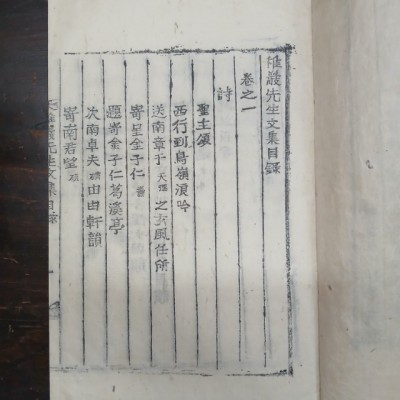 權巖先生文集目錄
卷之一
詩
聖主頌
西行到鳥嶺浪吟
送南章于天漢之玄風任所
寄呈金子仁
題寄金子仁葛溪亭
次南卓夫由由軒韻
寄南君望
先生文集目錄